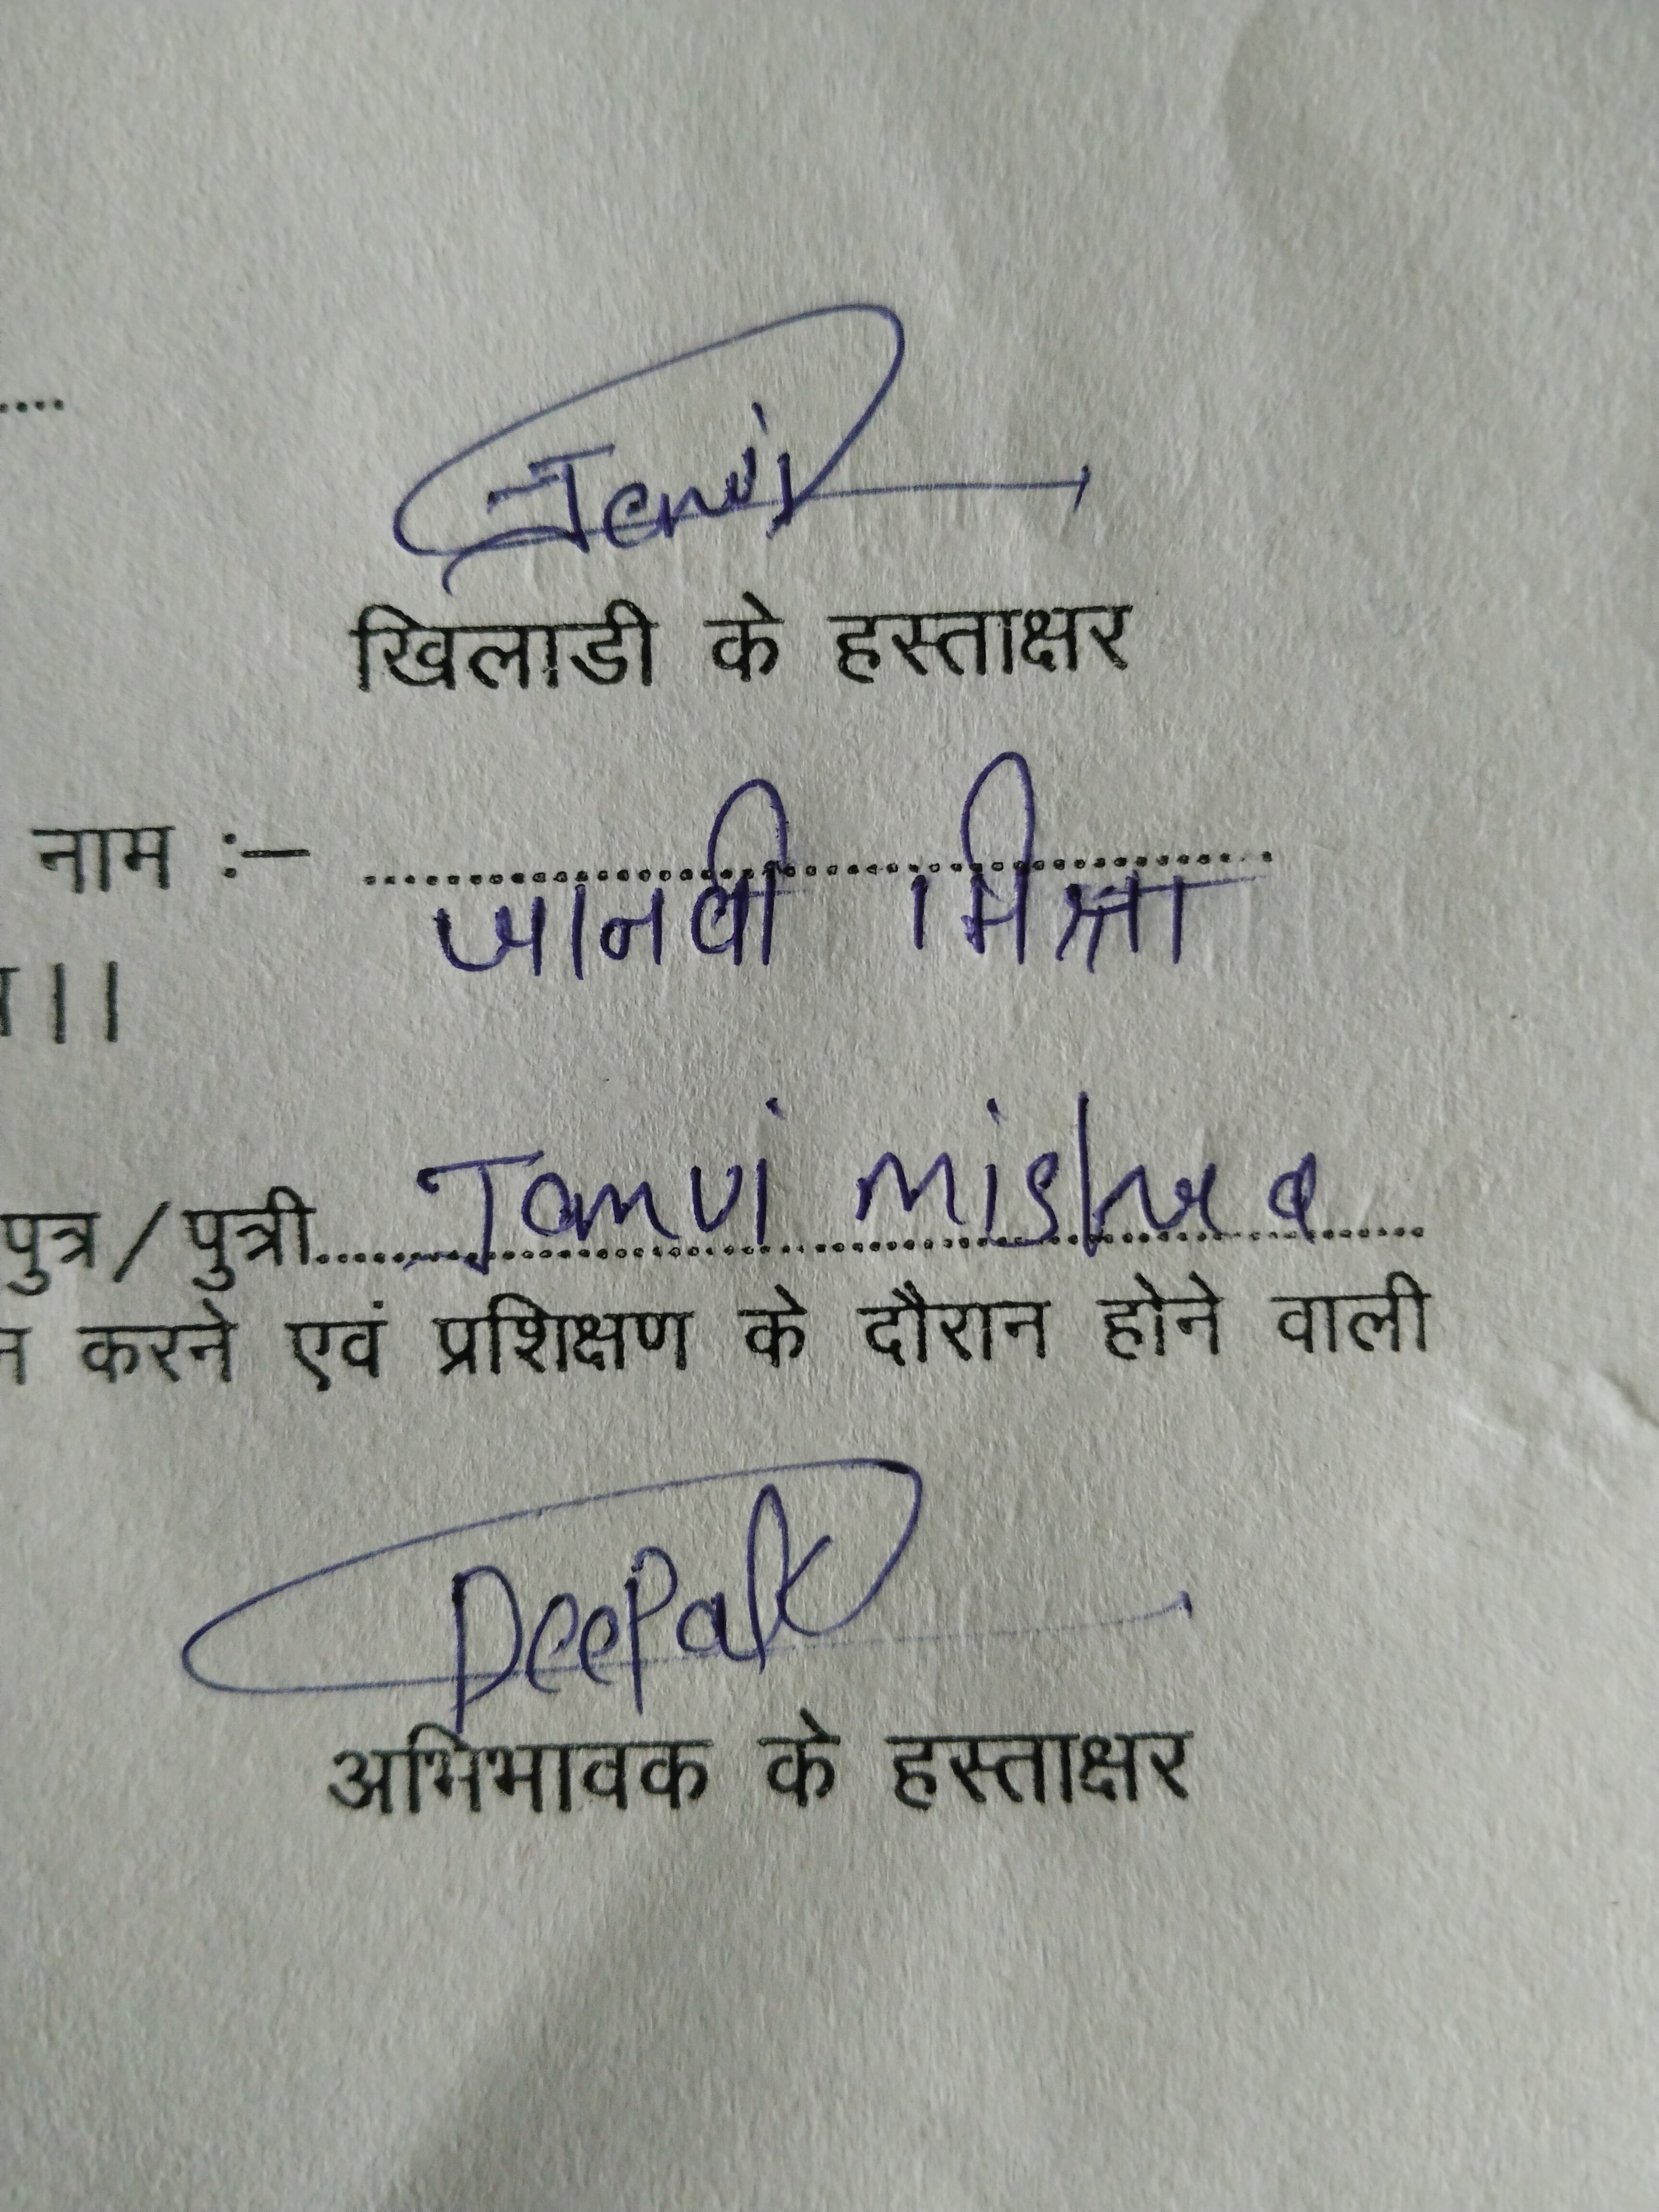 खिलाडी के हस्ताक्षर
नाम :- जानवी मिश्रा
।।
पुत्र/पुत्री Janvi mishra
करने एवं प्रशिक्षण के दौरान होने वाली
Deepak
अभिभावक के हस्ताक्षर